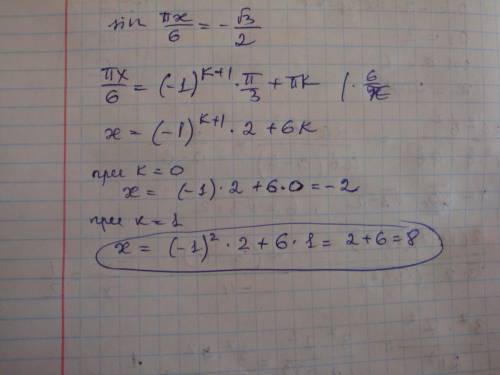 sin πx/6 = -√3/2
πx/6 = (-1)^(k+1) · π/3 + πk | · 6/π
x = (-1)^(k+1) · 2 + 6k
при k = 0
x = (-1) · 2 + 6·0 = -2
при k = 1
x = (-1)² · 2 + 6 · 1 = 2+6 = 8